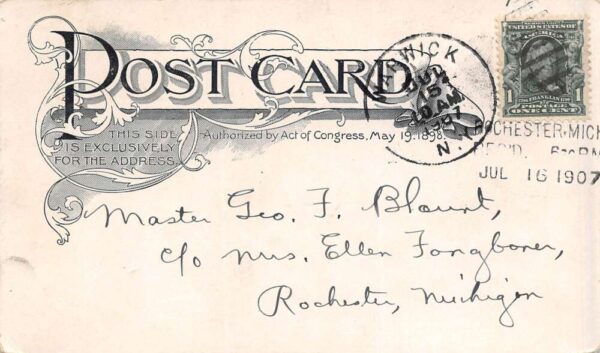 POST CARD
THIS SIDE
IS EXCLUSIVELY
FOR THE ADDRESS.
Authorized by Act of Congress, May 19, 1898.
WARWICK
JUL
15
10 AM
'07
N.Y.
UNITED STATES OF
AMERICA
FRANKLIN
1 1
POSTAGE
ONE CENT
ROCHESTER, MICH
REC'D.
JUL 16 1907
Master Geo. F. Blount,
c/o Mrs. Ellen Fangboner,
Rochester, Michigan